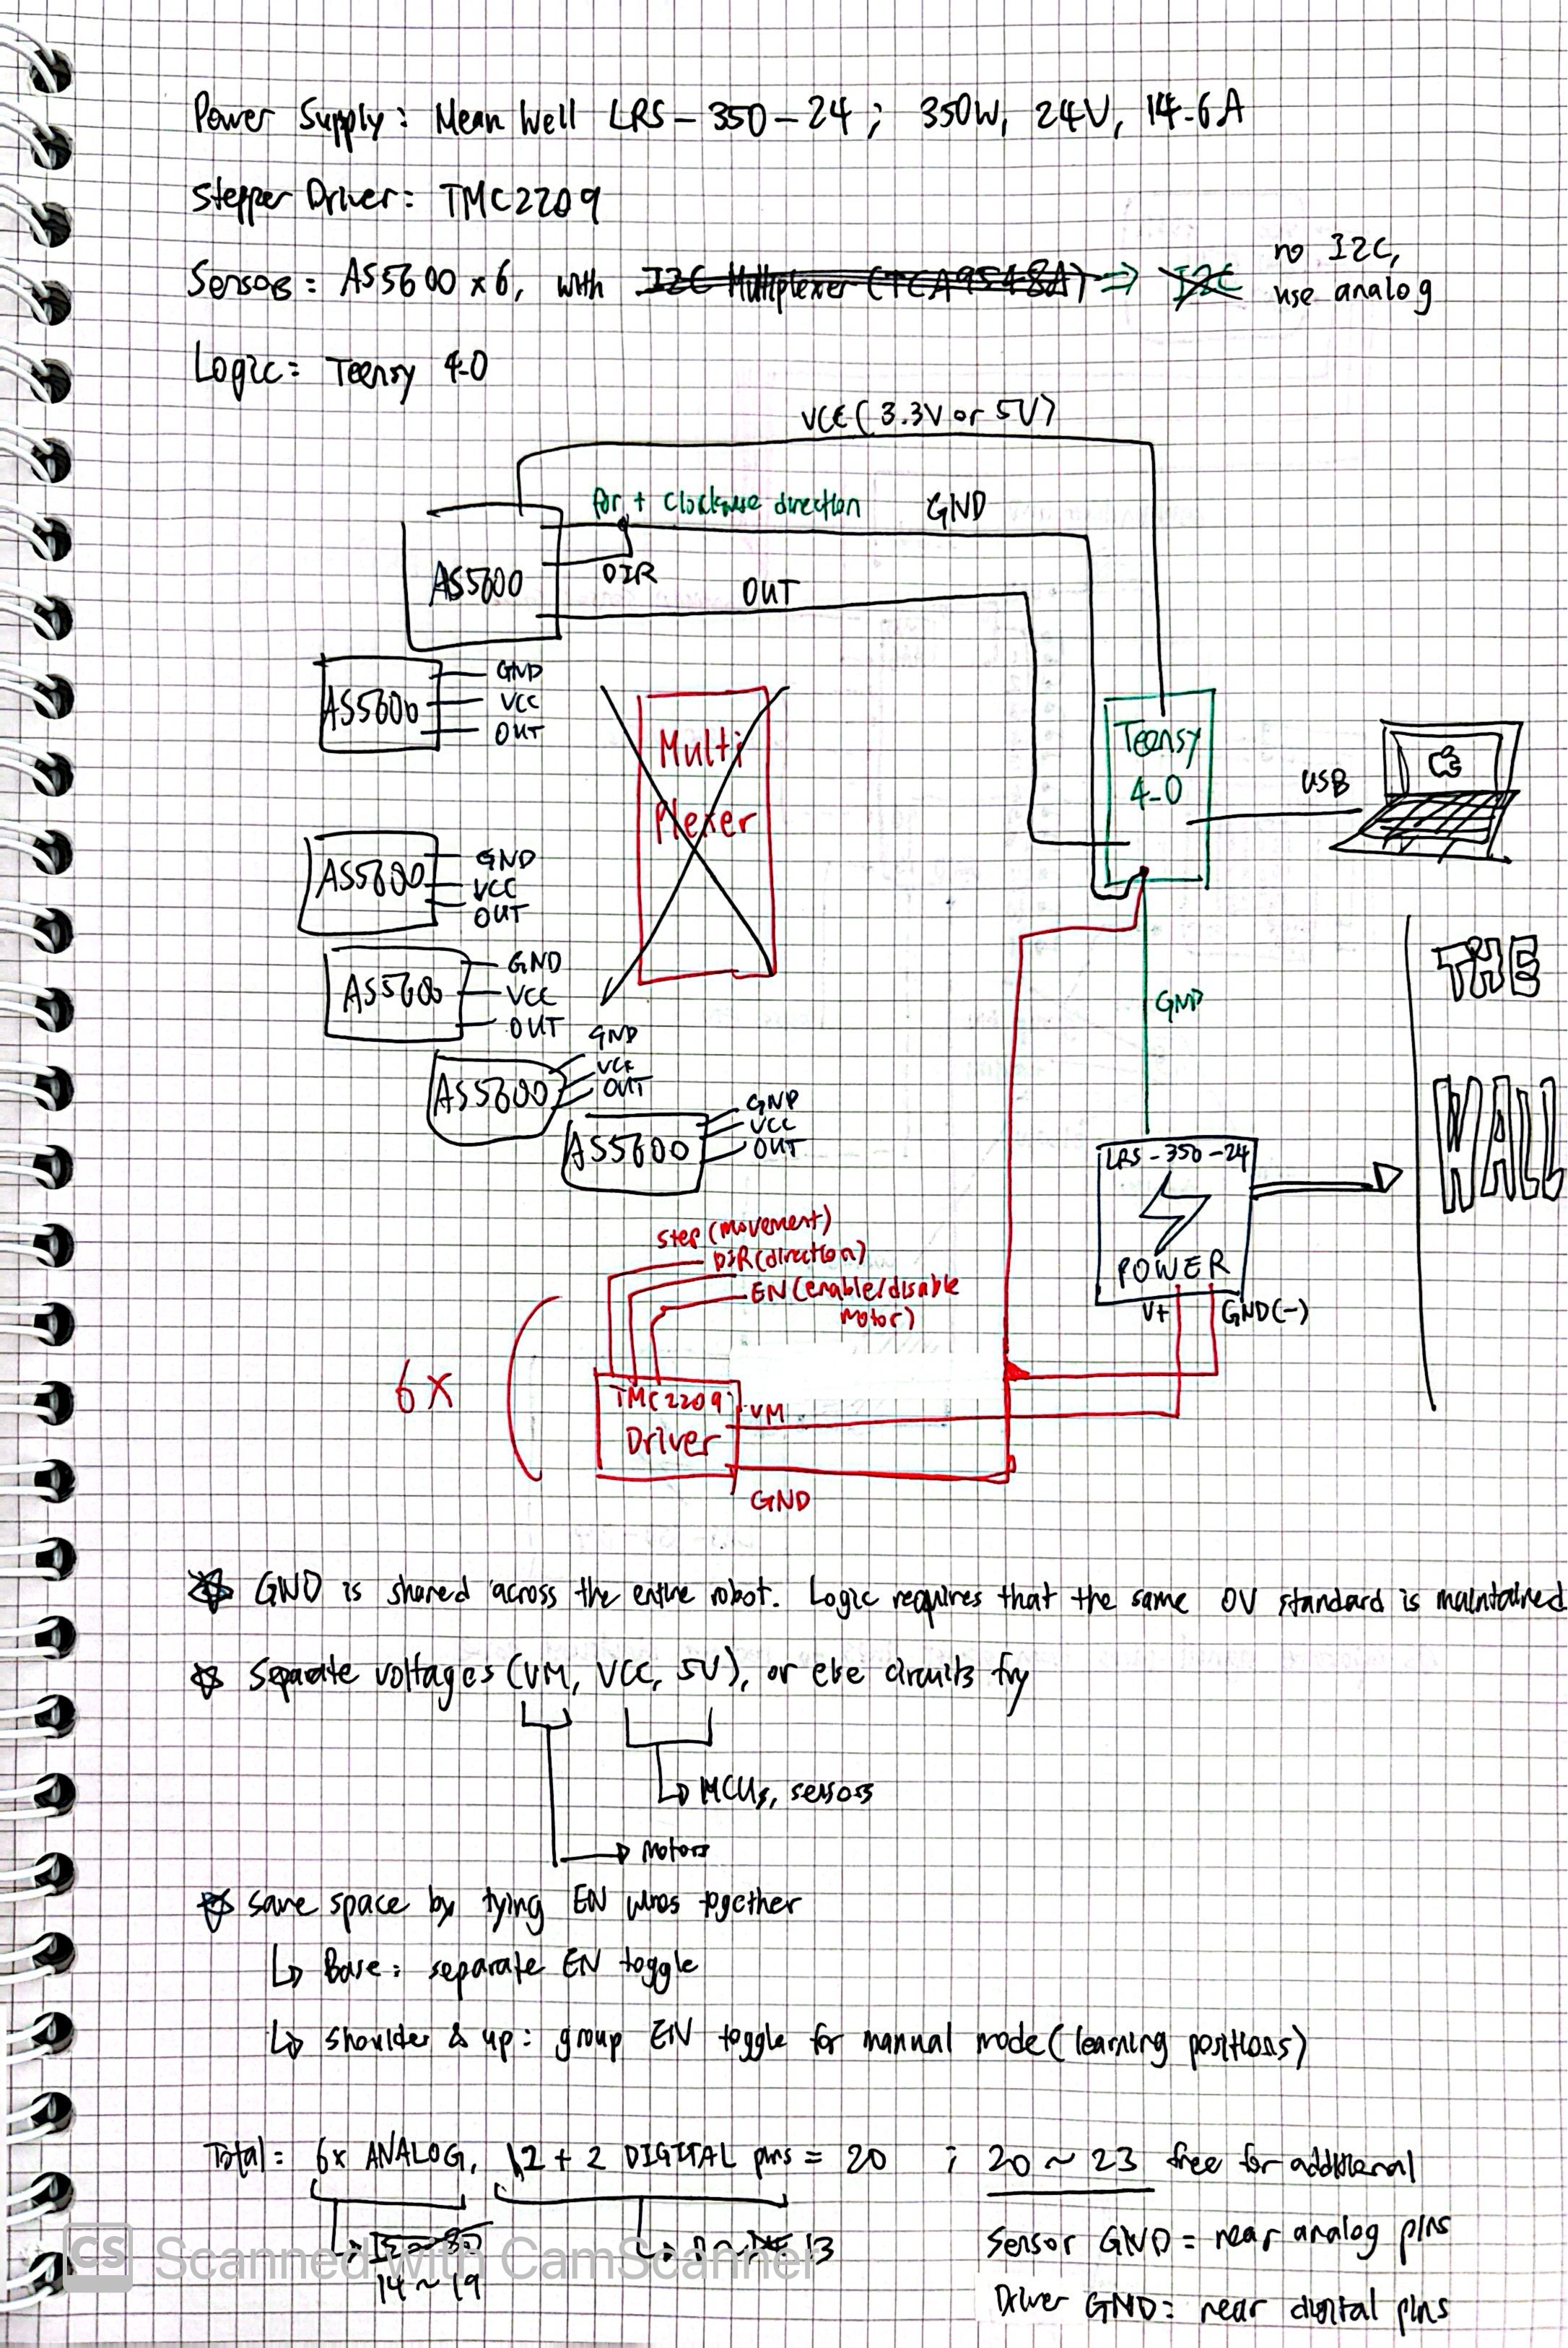 Power Supply: Mean Well LRS-350-24; 350W, 24V, 14.6A
Stepper Driver: TMC2209
Sensors: AS5600 x6, with I2C Multiplexer (TCA9548A) ⇒ I2C no I2C,
use analog
Logic: Teensy 4.0
VCC (3.3V or 5V)
for + clockwise direction GND
DIR
AS5600
OUT
AS5600
GND
VCC
OUT
Multi
Plexer
Teensy
4.0
USB
AS5600
GND
VCC
OUT
AS5600
GND
VCC
OUT
THE
WALL
GND
AS5600
GND
VCC
OUT
AS5600
GND
VCC
OUT
LRS-350-24
POWER
V+
GND(-)
Step (movement)
DIR (direction)
EN (enable/disable
motor)
6x
TMC2209
Driver
VM
GND
GND is shared across the entire robot. Logic requires that the same 0V standard is maintained
Separate voltages (VM, VCC, 5V), or else circuits fry
MCUs, sensors
Motors
Save space by tying EN wires together
Base: separate EN toggle
Shoulder & up: group EN toggle for manual mode (learning positions)
Total: 6x ANALOG, 12 + 2 DIGITAL pins = 20 ; 20 ~ 23 free for additional
14 ~ 19
13
Sensor GND = near analog pins
Driver GND = near digital pins
CS Scanned with CamScanner